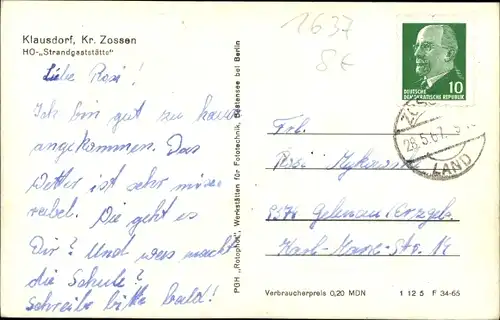 1637
8€
Klausdorf, Kr. Zossen
HO-„Strandgaststätte"
Liebe Rosi!
Ich bin gut zu hause
angekommen. Das
Wetter ist sehr mise-
rabel. Wie geht es
Dir? Und was macht
die Schule?
Schreibe bitte bald!
PGH „Rotophot", Werkstätten für Fototechnik, Bestensee bei Berlin
10
DEUTSCHE
DEMOKRATISCHE REPUBLIK
28.5.67
LAND
Frl.
Rosi
9374 Gelenau/Erzgeb.
Karl-Marx-Str.
Verbraucherpreis 0,20 MDN
1 12 5 F 34-65